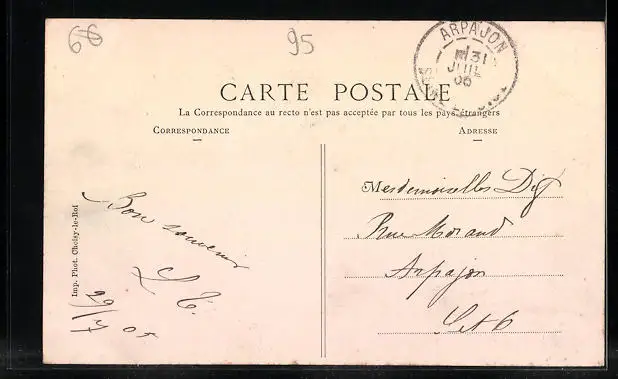 66
95
ARPAJON
31
JUIL
05
CARTE POSTALE
La Correspondance au recto n'est pas acceptée par tous les pays étrangers
CORRESPONDANCE
ADRESSE
Imp. Phot. Choisy-le-Roi
Bon souvenir
29/7 05
Mesdemoiselles
Rue Morand
Arpajon
S et O